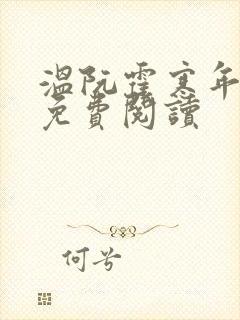 温阮霍寒年
免費閱讀
何兮